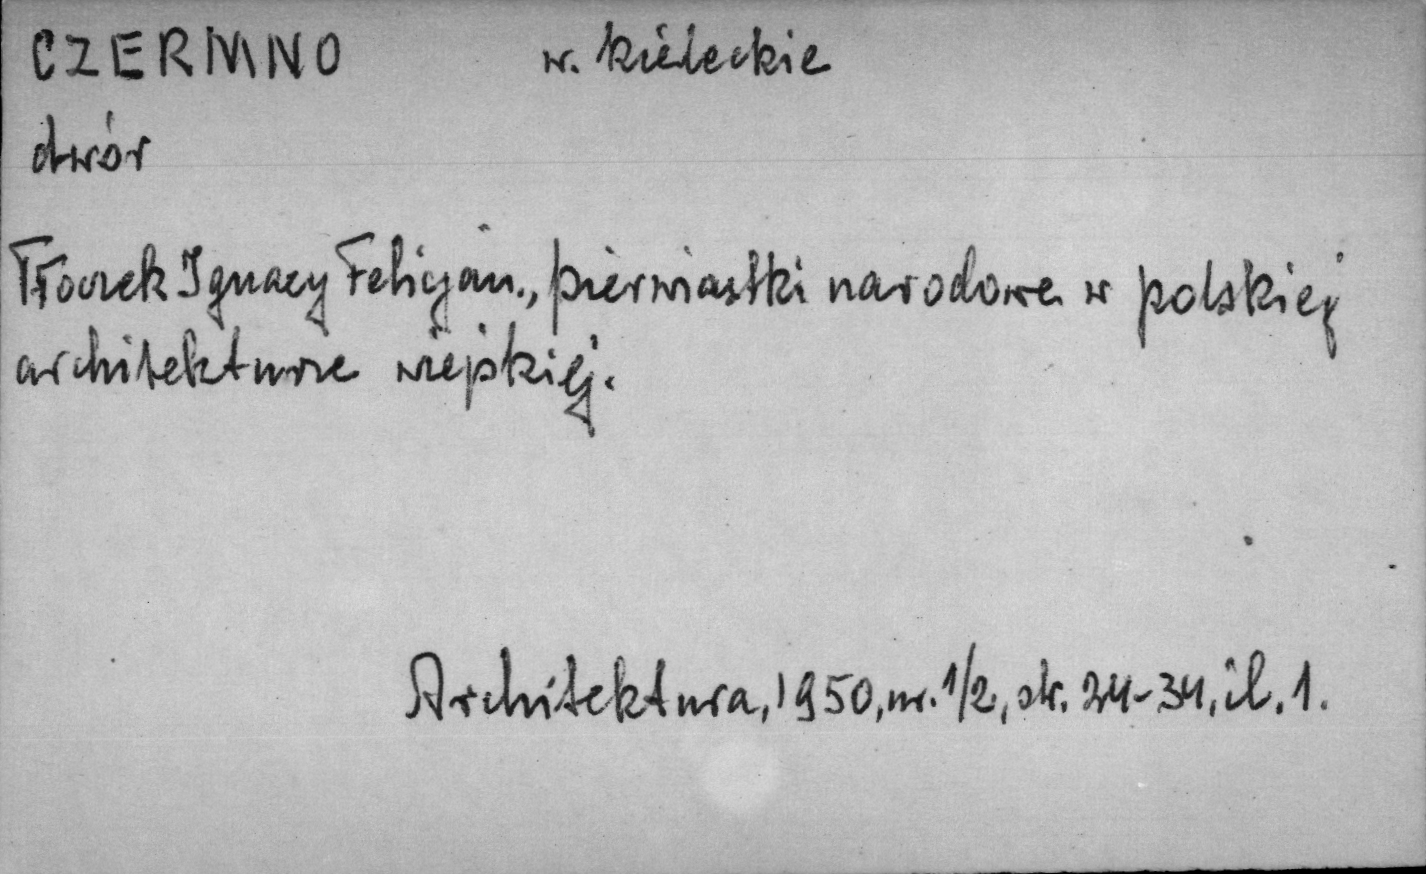 CZERMNO w. kieleckie
dwór
Tłoczek Ignacy Felicjan., pierwiastki narodowe w polskiej
architekturze wiejskiej.
Architektura, 1950, nr. 1/2, str. 24-34, il. 1.